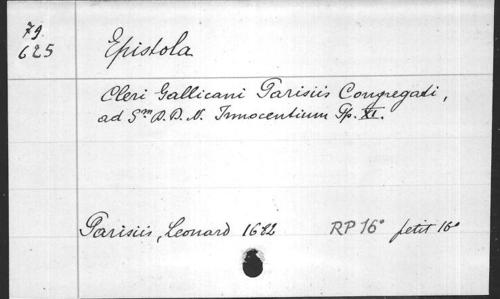 79
625
Epistola
Cleri Gallicani Parisiis Congregati,
ad Sm. D. D. N. Innocentium Pp. XI.
Parisiis, Leonard 1682 RP 16° petit 16°